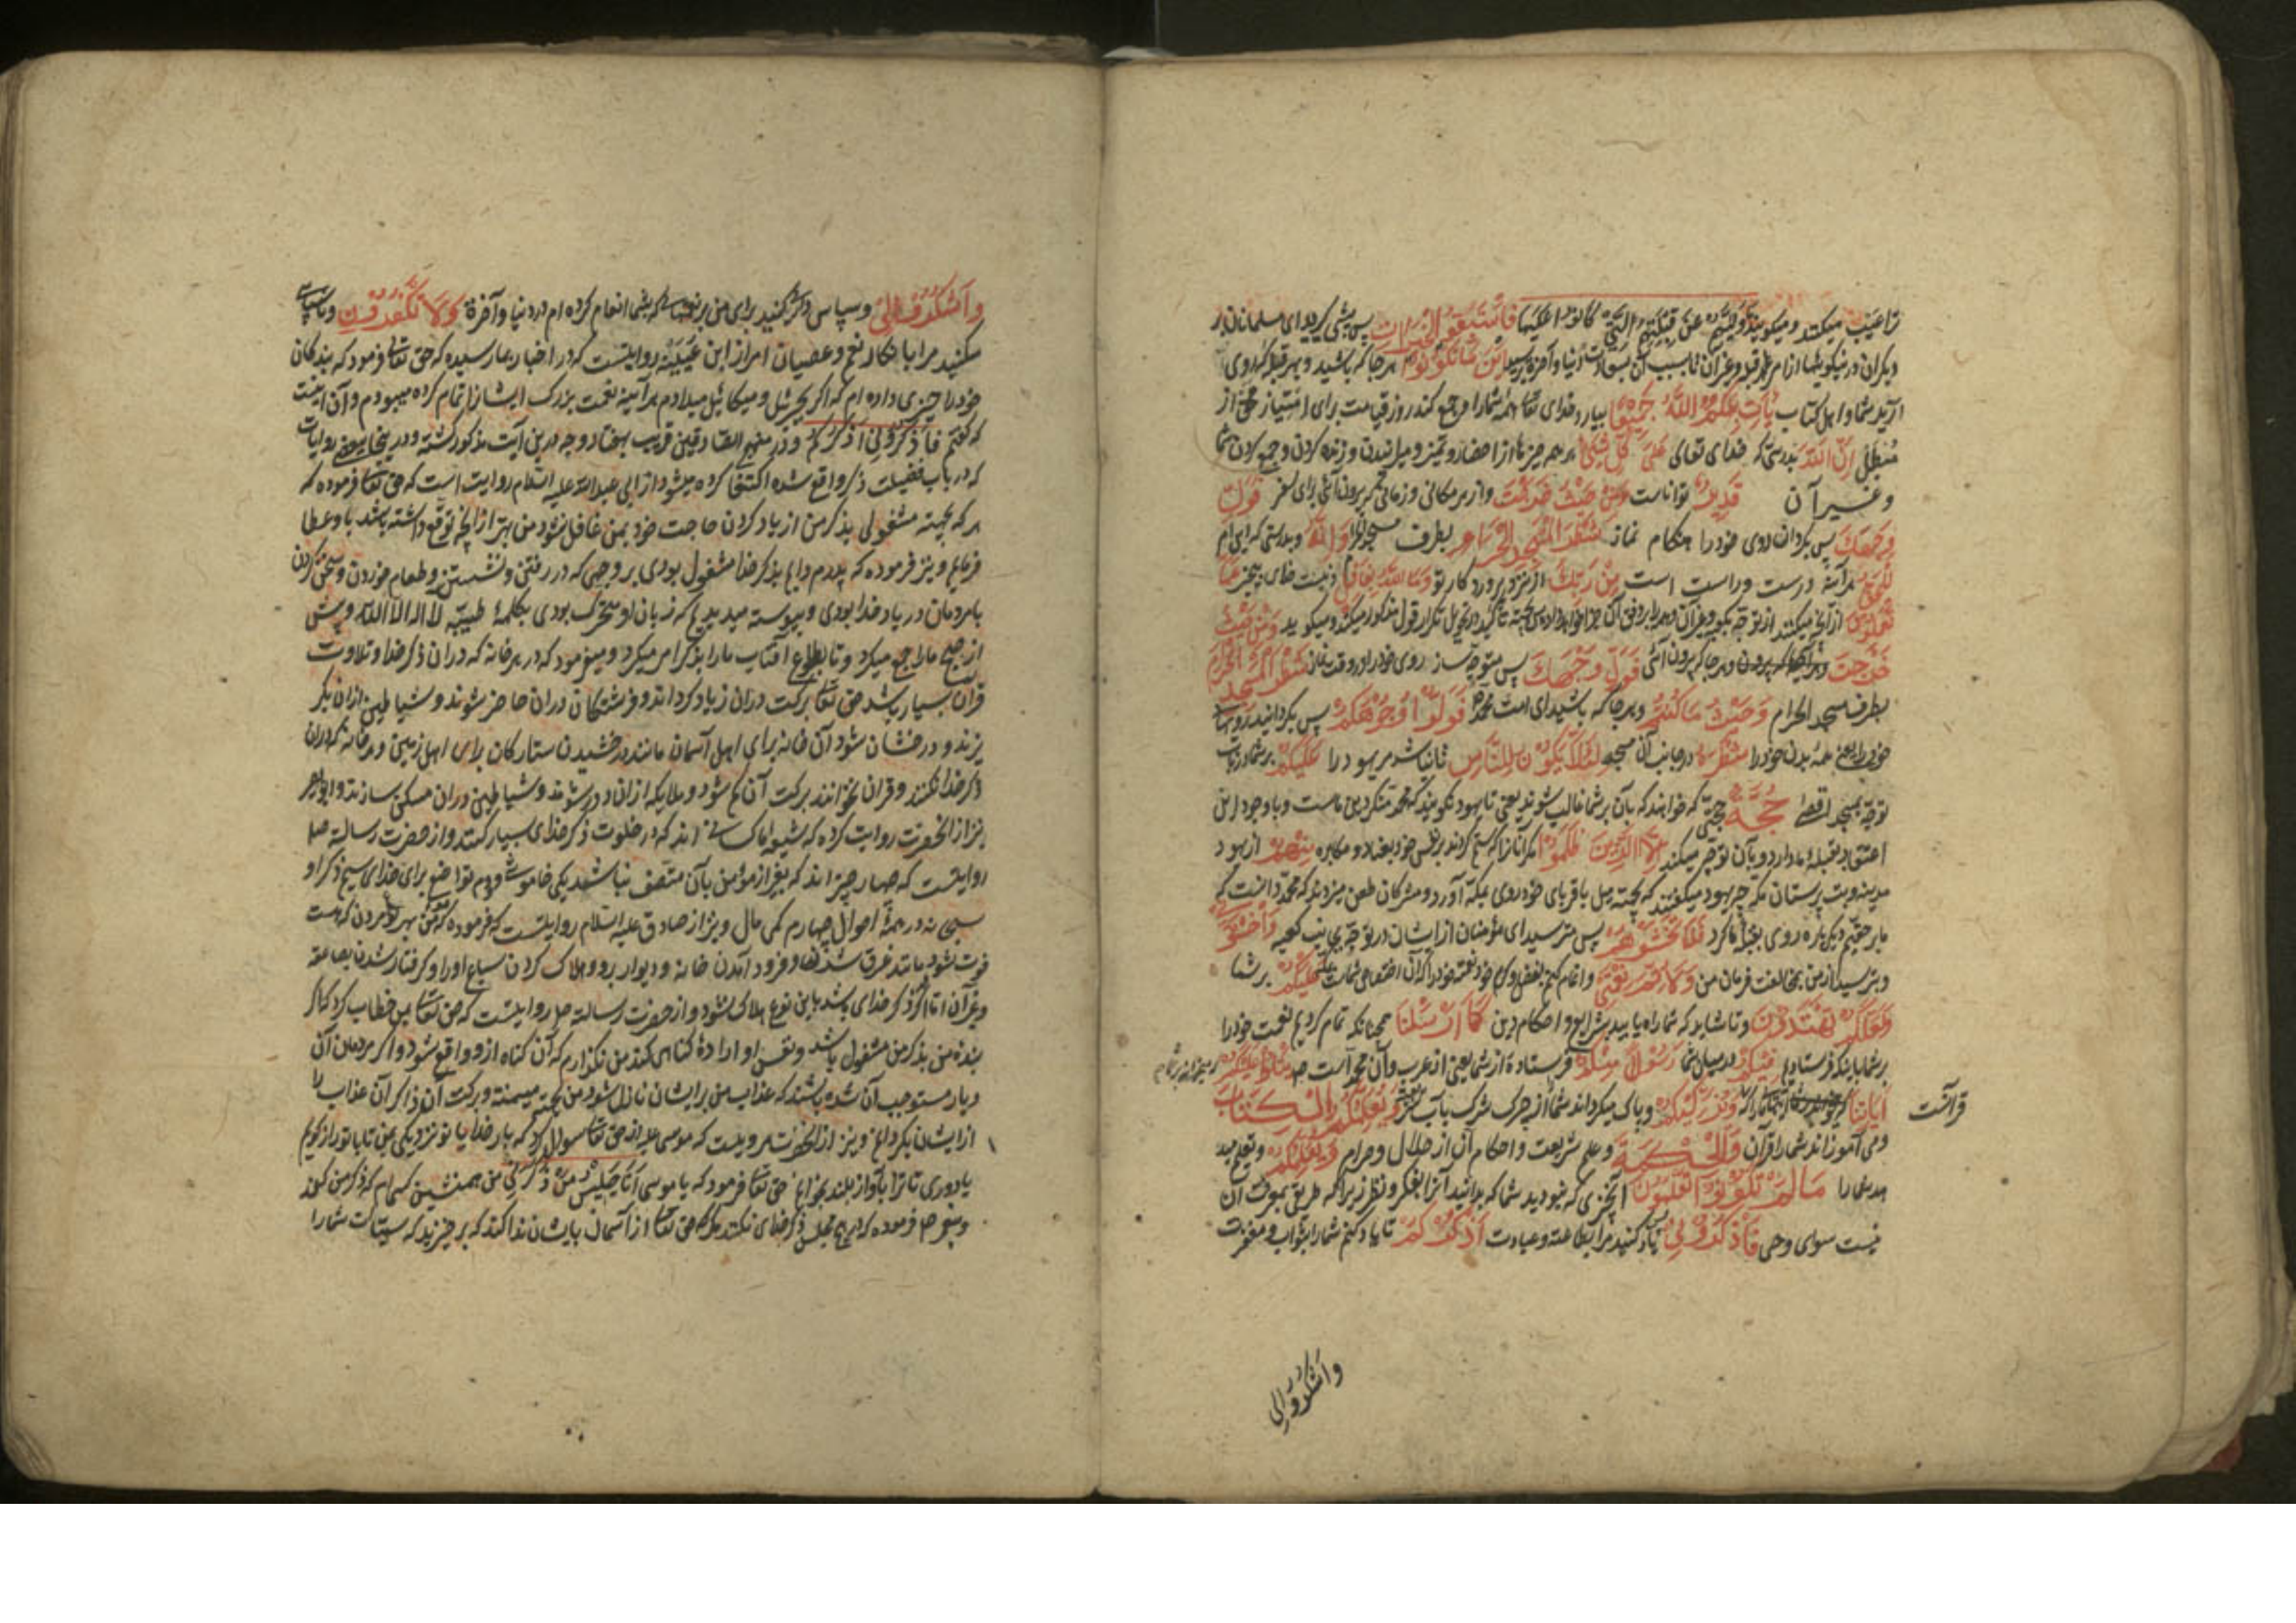 ترا عیب میکنند و میکویند وَلّیهُم عن قبلتهم التی کانوا علیها فَاسْتَبِقُوا الْخَیْرَاتِ پس پیشی کیرید ای مسلمانان بر
دیکران در نیکوییها از امر قبله و غیر آن تا بسبب آن بسعادت دنیا و آخرة برسید اَیْنَ مَا تَکُونُوا هر جا که باشید و بهر قبله که روی
آرید شما و اهل کتاب یَأْتِ بِکُمُ اللّهُ جَمِیعًا بیارد خدای تعا همه شما را و جمع کند روز قیامت برای امتیاز محق از
مُبطل اِنَّ اللّهَ بدرستی که خدای تعالی عَلَی کُلِّ شَیْءٍ بر همه چیزها از احضار و تمیز و میرانیدن و زنده کردن و جمع کردن شما
و غیر آن قَدِیرٌ تواناست وَمِنْ حَیْثُ خَرَجْتَ و از هر مکانی و زمانی که بیرون آئی برای سفر فَوَلِّ
وَجْهَكَ پس بکردان روی خود را هنکام نماز شَطْرَ الْمَسْجِدِ الْحَرَامِ بطرف مسجد الحرام وَاِنَّهُ و بدرستی که این امر
لَلْحَقُّ هر آینه درست و راست است مِنْ رَبِّكَ از نزد پروردکار تو وَمَا اللّهُ بِغَافِلٍ و نیست خدای بیخبر عَمَّا
تَعْمَلُونَ از آنچه میکنند از توجه بکعبه و غیر آن و همه را بر وفق آن جزا خواهد داد پس بجهة تأکید تکرار قول مذکور میکند و میکوید وَمِنْ حَیْثُ
خَرَجْتَ و هر جا که بیرون آئی فَوَلِّ وَجْهَكَ پس متوجه ساز روی خود را در وقت نماز شَطْرَ الْمَسْجِدِ الْحَرَامِ
بطرف مسجد الحرام وَحَیْثُ مَا کُنْتُمْ و هر جا که باشید ای امت محمد فَوَلُّوا وُجُوهَکُمْ پس بکردانید رویهای
خود را یعنی همهٔ بدن خود را شَطْرَهُ در جانب آن مسجد لِئَلَّا یَکُونَ لِلنَّاسِ تا نباشد مر یهود را عَلَیْکُمْ بر شما در باب
توجه بمسجد اقصی حُجَّةٌ حجتی که خواهند که بآن بر شما غالب شوند یعنی تا یهود نکویند که محمد منکر دین ماست و با وجود این
اعتقاد بقبلهٔ ما دارد و بآن توجه میکند اِلَّا الَّذِینَ ظَلَمُوا مکر آنان را که ستم کردند بر نفس خود بعناد و مکابره مِنْهُمْ از یهود
مدینه و بت پرستان مکه چه یهود میکفتند که بجهة میل باقربای خود روی بمکه آورد و مشرکان طعن میزدند که محمد دانست که
ما بر حقیم دیکر باره روی بقبلهٔ ما کرد فَلَا تَخْشَوْهُمْ پس مترسید ای مؤمنان از ایشان در توجه بجانب کعبه وَاخْشَوْنِی
و بترسید از من بمخالفت فرمان من وَلِاُتِمَّ نِعْمَتِی و تمام کنم بفضل و کرم خود نعمت خود را عَلَیْکُمْ بر شما
وَلَعَلَّکُمْ تَهْتَدُونَ و تا شاید که شما راه یابید بشرایع و احکام دین کَمَا اَرْسَلْنَا همچنانکه تمام کردیم نعمت خود را
بر شما باینکه فرستادیم فِیکُمْ در میان شما رَسُولًا مِنْکُمْ فرستادهٔ از شما یعنی از عرب و آن محمد است ص یَتْلُوا عَلَیْکُمْ میخواند بر شما
اٰیَاتِنَا وَیُزَکِّیکُمْ و پاک میکرداند شما را از چرک شرک وَیُعَلِّمُکُمُ الْکِتَابَ
قرآنست
و می آموزاند شما را قرآن وَالْحِکْمَةَ و علم شریعت و احکام آن از حلال و حرام وَیُعَلِّمُکُمْ و تعلیم مید
هد شما را مَا لَمْ تَکُونُوا تَعْلَمُونَ آنچیزی که نبودید شما که بدانید آنرا بفکر و نظر زیرا که طریق بمعرفت آن
نیست سوای وحی فَاذْکُرُونِی یاد کنید مرا بطاعت و عبادت اَذْکُرْکُمْ تا یاد کنم شما را بثواب و مغفرت
واشکروا لی
وَاشْکُرُوا لِی و سپاس و شکر کنید برای من بر نعمتهای که بشما انعام کرده ام در دنیا و آخرة وَلَا تَکْفُرُونِ و ناسپاسی
مکنید مرا بانکار نعم و عصیان امر از ابن عیینه روایتست که در اخبار بما رسیده که حق تعالی فرمود که بندکان
خود را چیزی داده ام که اکر بجبرئیل و میکائیل میدادم هر آینه نعمت بزرک ایشانرا تمام کرده میبودم و آن اینست
که کفتم فاذکرونی اذکرکم و در منهج الصادقین قریب بهفتاد وجه در این آیت مذکور کشته و در اینجا ببعضی روایات
که در باب فضیلت ذکر واقع شده اکتفا کرده میشود از ابی عبدالله علیه السلام روایت است که حق تعا فرموده که
هر که بجهة مشغولی بذکر من از یاد کردن حاجت خود بمن غافل شود من بهتر از آنچه توقع داشته باشد باو عطا
فرمایم و نیز فرموده که پدرم دایم بذکر خدا مشغول بودی بر وجهی که در رفتن و نشستن و طعام خوردن و سخن کردن
با مردمان در یاد خدا بودی و پیوسته میدیدیم که زبان او متحرک بودی بکلمهٔ طیبه لا اله الا الله و پیش
از صبح ما را جمع میکرد و تا بطلوع آفتاب ما را بذکر امر میکرد و میفرمود که در هر خانه که در آن ذکر خدا و تلاوت
قرآن بسیار باشد حق تعا برکت در آن زیاد کرداند و فرشتکان در آن حاضر شوند و شیاطین از آن بکر
یزند و درخشان شود آن خانه برای اهل آسمان مانند درخشیدن ستارکان برای اهل زمین و هر خانه که در آن
ذکر خدا نکنند و قرآن نخوانند برکت آن کم شود و ملایکه از آن دور شوند و شیاطین در آن مسکن سازند و ابو بصیر
نیز از آنحضرت روایت کرده که شیعهٔ ما کسانی اند که در خلوت ذکر خدای بسیار کنند و از حضرت رسالت صل
روایتست که چهار چیز اند که بغیر از مؤمن بآن متصف نباشد یکی خاموشی دوم تواضع برای خدای سیم ذکر او
سبحانه در همهٔ احوال چهارم کمی مال و نیز از صادق علیه السلام روایتست که فرموده که مؤمن بهر مردن که هست
فوت شود مانند غرق شدن و فرود آمدن خانه و دیوار برو و هلاک کردن سباع او را و کرفتار شدن بصاعقه
و غیر آن اما اکر ذکر خدای باشد باین نوع هلاک نشود و از حضرت رسالت صل روایتست که حق تعا خطاب کرد که اکر
بندهٔ من بذکر من مشغول باشد و نفس او ارادهٔ کناهی کند من نکذارم که آن کناه از و واقع شود و اکر مردمان آن
دیار مستوجب آن شده باشند که عذاب من بر ایشان نازل شود من بجهت میمنة و برکت آن ذاکر آن عذاب را
از ایشان بکردانم و نیز از آنحضرت مرویست که موسی ع از حق تعا سوال کرد که بار خدایا تو نزدیکی بمن تا با تو راز کویم
یا دوری تا ترا بآواز بلند بخوانم حق تعا فرمود که یا موسی اَنَا جَلِیسُ مَنْ ذَکَرَنِی من همنشین کسی ام که ذکر من کند
و نیز ص فرموده که در هیچ مجلس ذکر خدای نکنند مکر که حق تعا از آسمان بایشان ندا کند که برخیزید که سیئات شما را